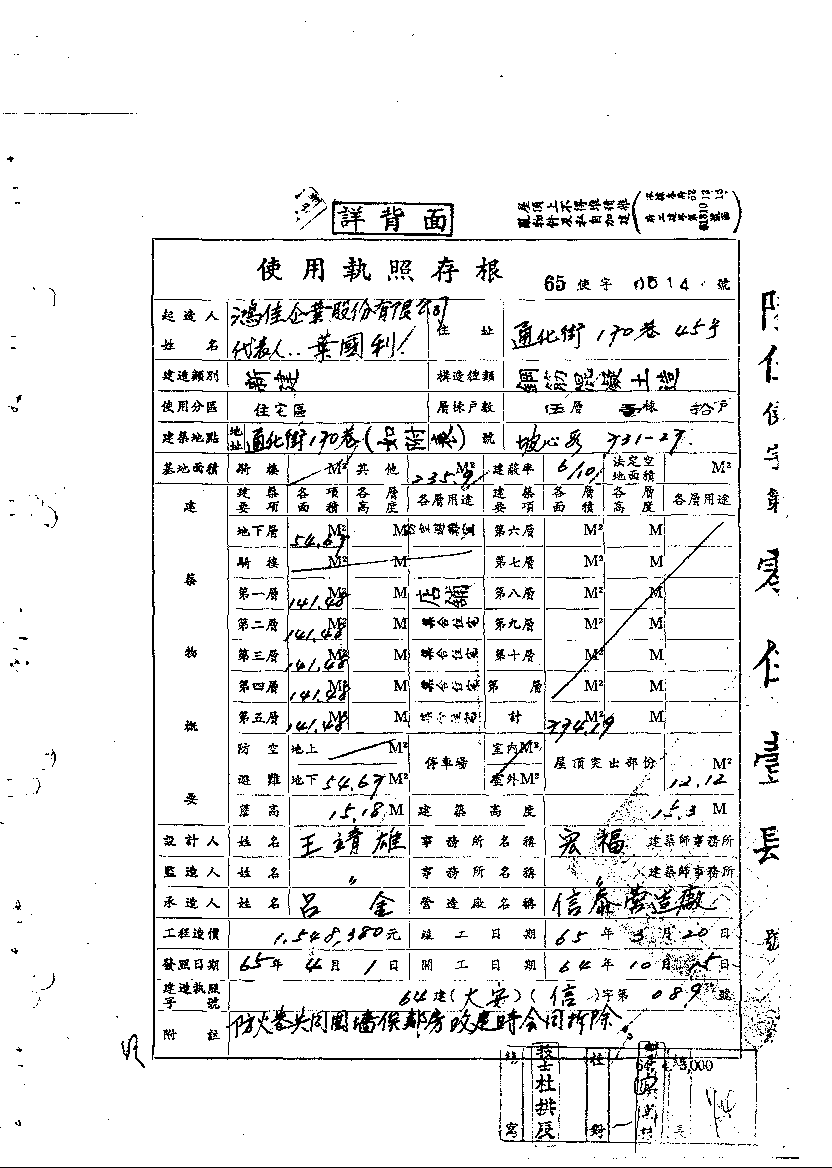 詳背面
屋頂上不得堆積雜
亂物料及私自加建
使用執照存根
65 使字 0514 號
起造人姓名 鴻佳企業股份有限公司 代表人：葉國利 住址 通化街170巷45号
建造類別 新建 構造種類 鋼筋混凝土造
使用分區 住宅區 層棟戶數 伍層 棟 拾戶
建築地點 地址 通化街170巷(如附表)號 坡心段 331-27
基地面積 騎樓 M² 其他 235.9 M² 建蔽率 6/10 法定空地面積 M²
建築要項 各項面積 各層高度 各層用途 建築要項 各層面積 各層高度 各層用途
建築物概要
地下層 54.67 M² M 第六層 M² M
騎樓 M² M 第七層 M² M
第一層 141.48 M² M 店鋪 第八層 M² M
第二層 141.48 M² M 集合住宅 第九層 M² M
第三層 141.48 M² M 集合住宅 第十層 M² M
第四層 141.48 M² M 集合住宅 第 層 M² M
第五層 141.48 M² M 集合住宅 計 M² M
防空避難 地上 M² 停車場 室內M² 屋頂突出部份 M²
地下 54.67 M² 室外M² 12.12
簷高 15.18 M 建築高度 15.3 M
設計人 姓名 王靖雄 事務所名稱 宏福 建築師事務所
監造人 姓名 〃 事務所名稱 〃 建築師事務所
承造人 姓名 呂金 營造廠名稱 信泰營造廠
工程造價 1,548,380元 竣工日期 65年3月20日
發照日期 65年4月1日 開工日期 64年10月15日
建造執照字號 64建(大安)(信)字第089號
附註 防火巷共同圍墻俟鄰房改建時會同拆除
繕寫 技士杜拱辰 校對